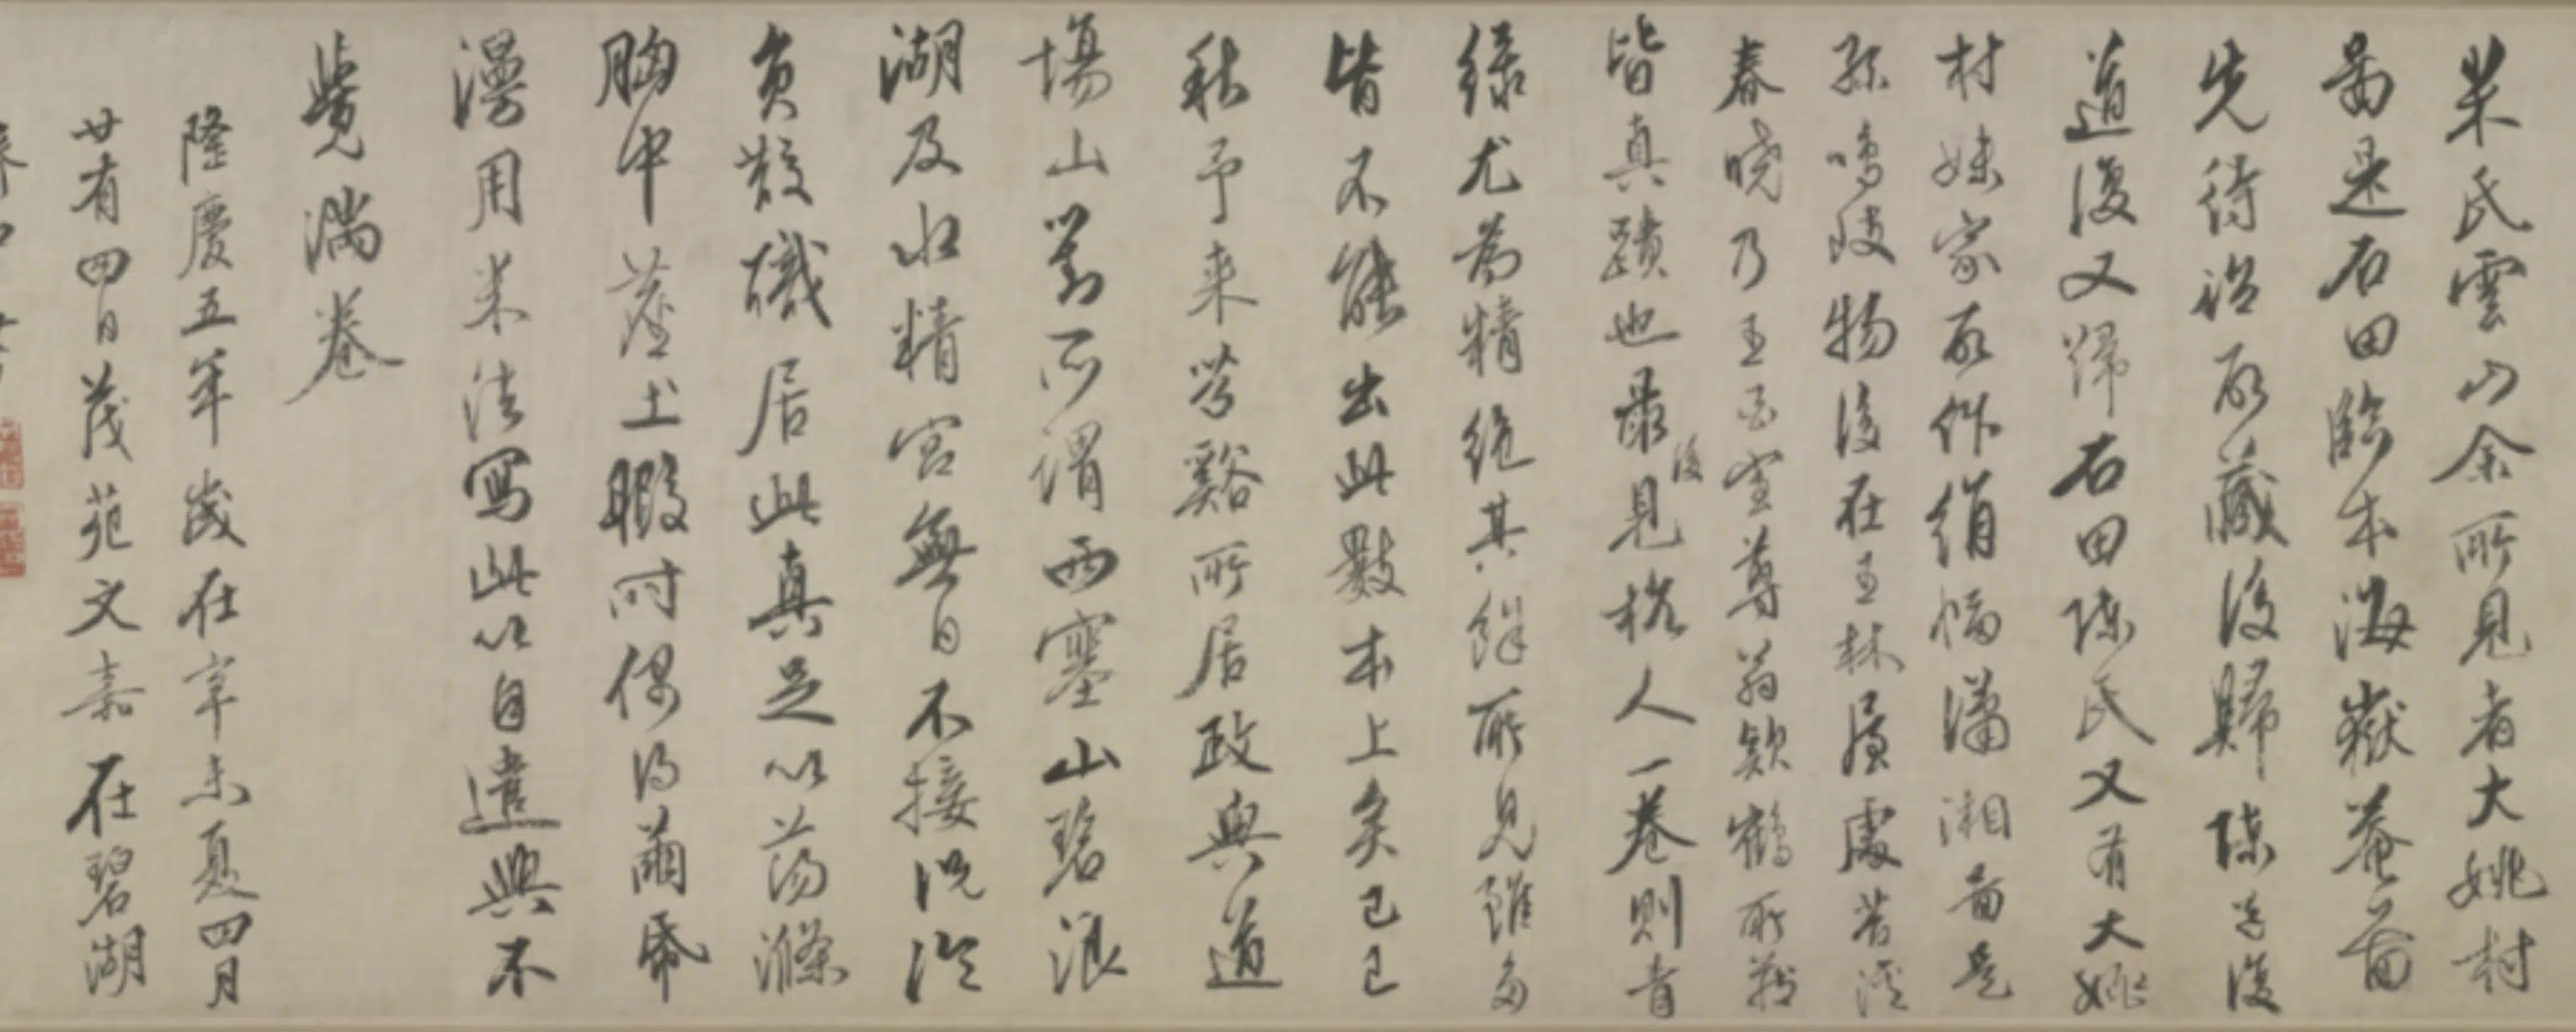 米氏雲山余所見者大姚村
啚是石田臨本海嶽菴啚
先待詔所藏後歸陳道復
道復又歸石田陳氏又有大姚
村妹家所作絹幅瀟湘啚是
孫鳴岐物後在王林屋處苕溪
春曉乃王酉室尊翁欵鶴所藏
皆真蹟也最後見桃人一卷則青
綠尤為精絕其餘所見雖多
皆不能出此數本上矣己巳
秋予來苕谿所居政與道
場山對所謂西塞山碧浪
湖及水精宮無日不接況冷
負散職居此真足以蕩滌
胸中塵土暇時偶得繭帋
漫用米法寫此以自遣興不
覺滿卷
隆慶五年歲在辛未夏四月
廿有四日茂苑文嘉在碧湖